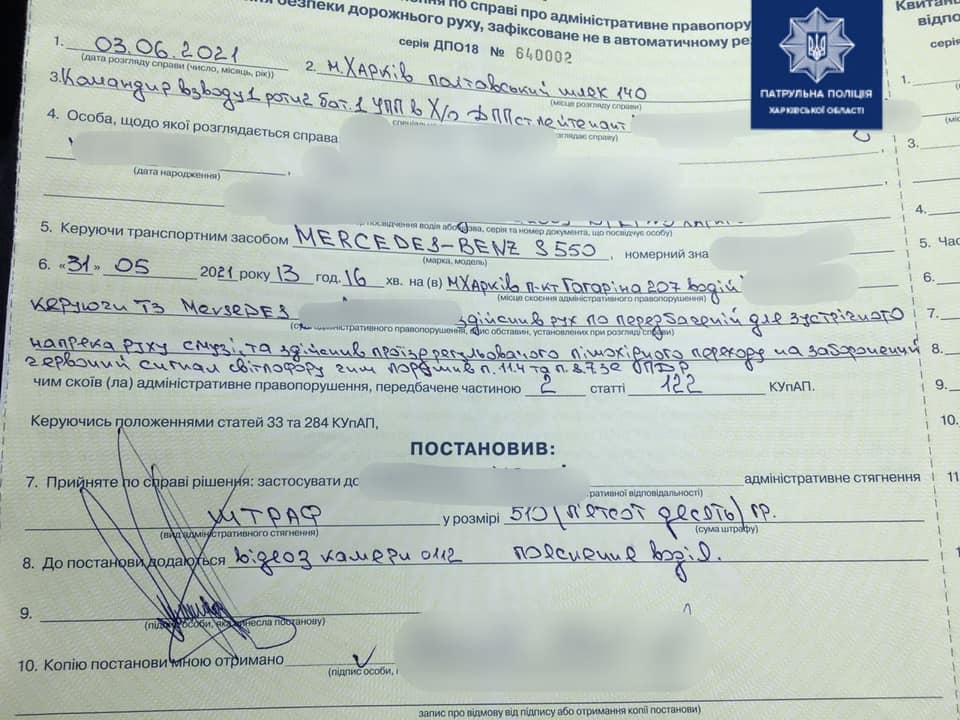 безпеки дорожнього руху, зафіксоване не в автоматичному
по справі про адміністративне правопору
серія ДПО18 № 640002
Квитан
відпо
серія
ПАТРУЛЬНА ПОЛІЦІЯ
ХАРКІВСЬКОЇ ОБЛАСТІ
1. 03.06.2021
(дата розгляду справи (число, місяць, рік))
2. м.Харків Полтавський шлях 140
(місце розгляду справи)
3. Командир взводу 1 роти 2 бат. 1 УПП в Х/о ДПП ст лейтенант
4. Особа, щодо якої розглядається справа
(дата народження)
5. Керуючи транспортним засобом MERCEDES-BENZ S 550, номерний зна
(марка, модель)
6. «31» 05 2021 року 13 год. 16 хв. на (в) м Харків п-кт Гагаріна 207 водій
(місце скоєння адміністративного правопорушення)
керуючи ТЗ Mersedes здійснив рух по передбаченій для зустрічного
адміністративного правопорушення, опис обставин, установлених при розгляді справи)
напрека руху смузі, та здійснив проїзд регульовачого пішохідного переходу на заборонений
червоний сигнал світлофору чим порушив п. 11.4 та п. 8.7.3е ПДР
чим скоїв (ла) адміністративне правопорушення, передбачене частиною 2 статті 122 КУпАП.
Керуючись положеннями статей 33 та 284 КУпАП,
ПОСТАНОВИВ:
7. Прийняте по справі рішення: застосувати до адміністративне стягнення
ративної відповідальності)
ШТРАФ у розмірі 510/п'ятсот десять/гр.
(вид адміністративного стягнення) (сума штрафу)
8. До постанови додаються відео з камери 0112 пояснення водія.
9.
(підпис особи, яка винесла постанову)
10. Копію постанови мною отримано
(підпис особи,
запис про відмову від підпису або отримання копії постанови)
1.
3.
4.
5. Час
6.
7.
8.
9.
10.
11